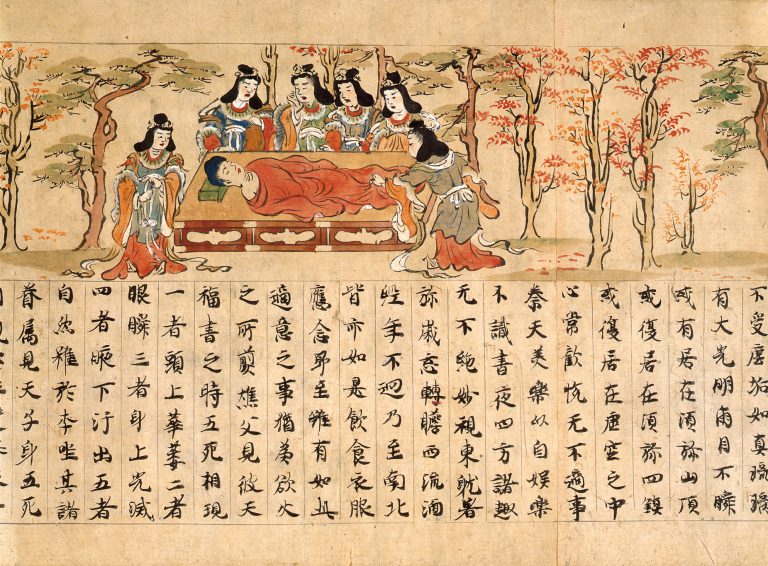 不受塵垢如真瑠璃
有大光明兩目不瞬
或有居在須弥山頂
或復居在須弥四鎮
或復居在虚空之中
心常歡悦无不適事
奏天美樂以自娯樂
不識晝夜四方諸趣
无不絶妙視東躭著
弥歳忘轉瞻西流湎
経年不迴乃至南北
皆亦如是飲食衣服
應念即至雖有如此
適意之事猶為欲火
之所煎燋又見彼天
福盡之時五死相現
一者頭上華萎二者
眼瞬三者身上光滅
四者腋下汗出五者
自然離於本坐其諸
眷属見天子身五死